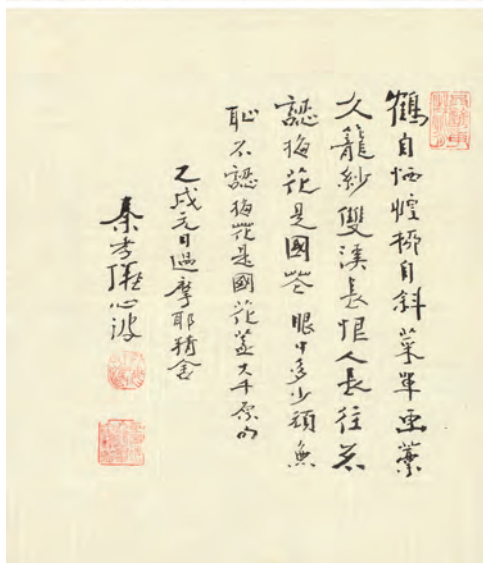 鶴自恓惶柳自斜菜單画藁
久籠紗雙溪長恨人長往
認梅花是國花 眼中多少頑無
恥不認梅花是國花蓋大千原句
乙戌元日過摩耶精舍
秦孝儀心波